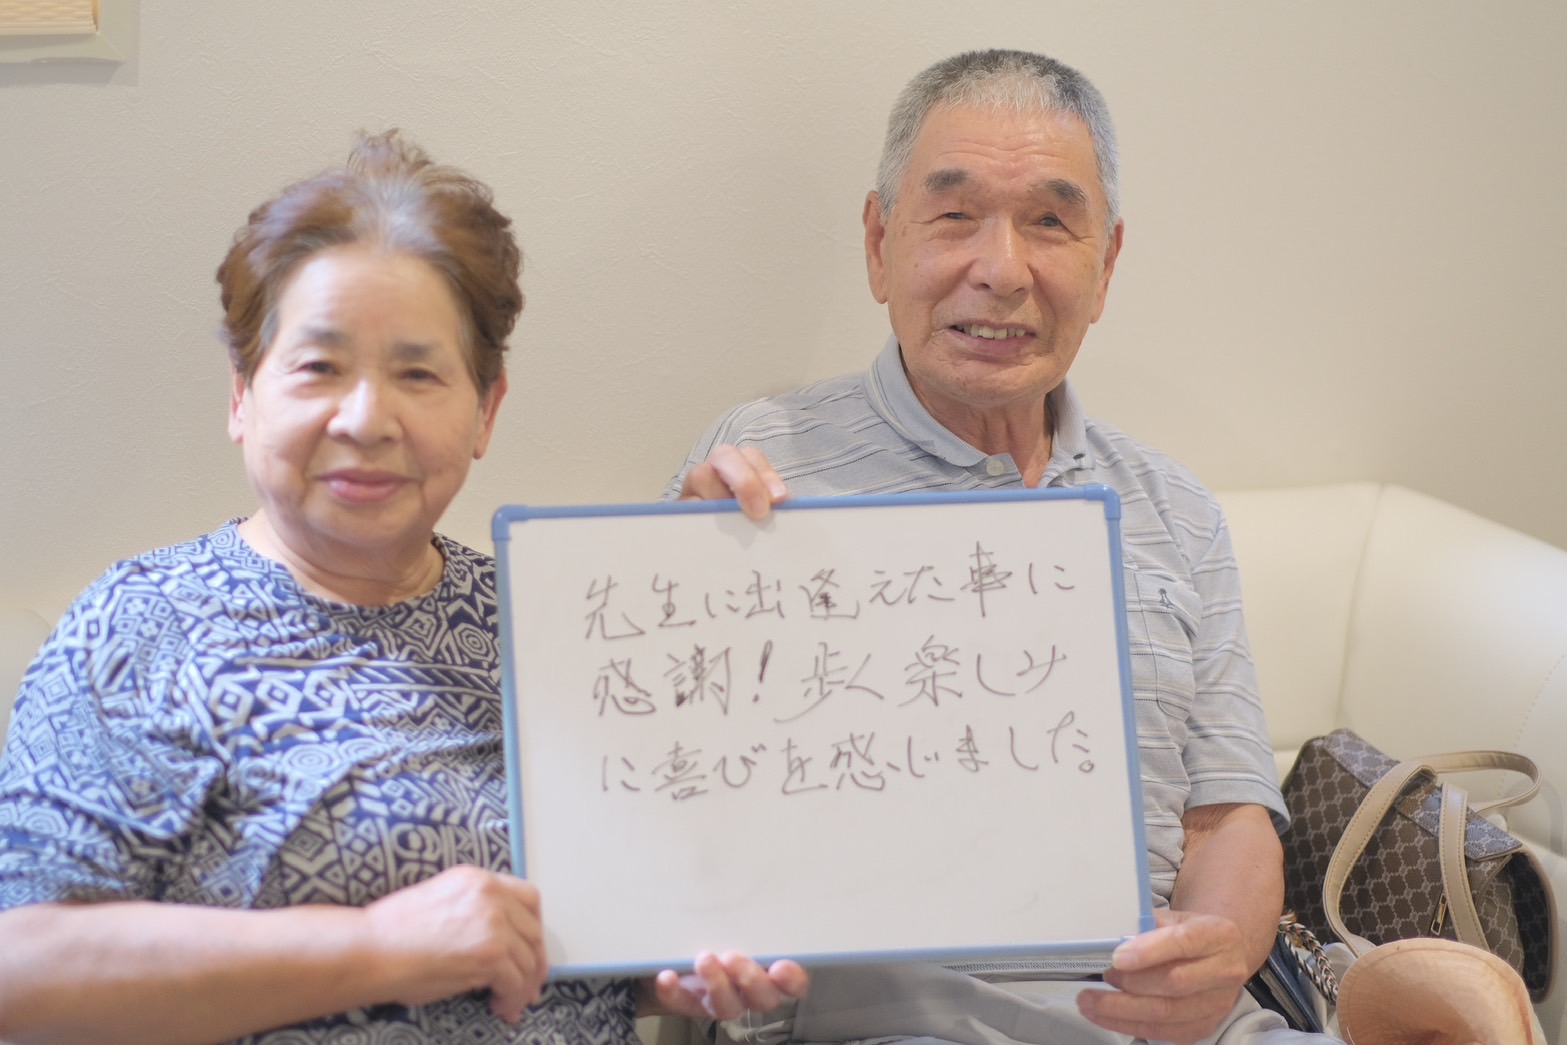 先生に出逢えた事に
感謝！歩く楽しみ
に喜びを感じました。